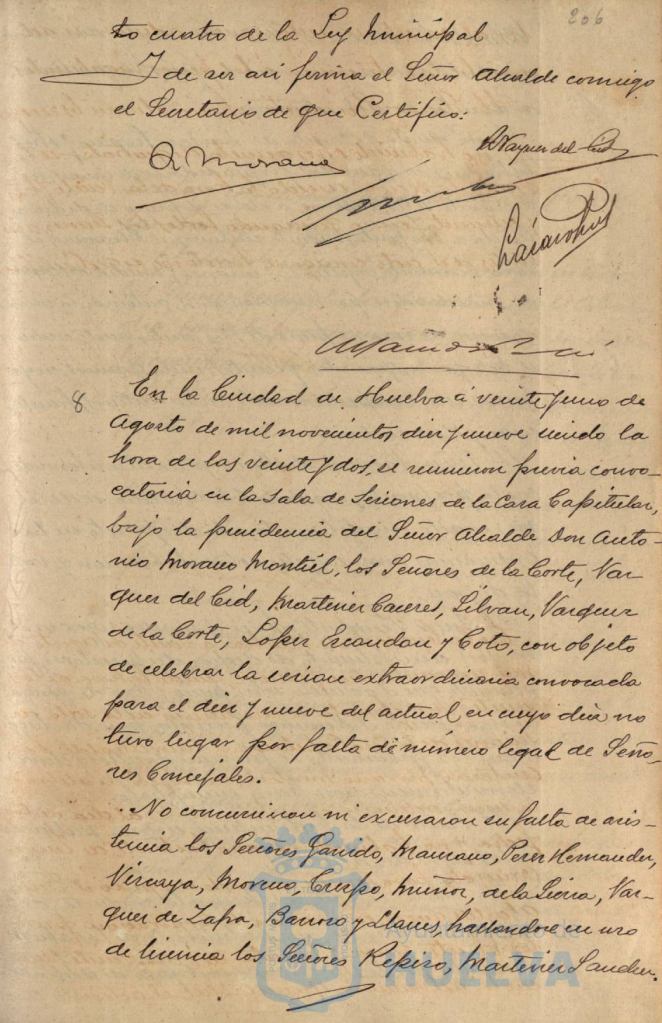 206
to cuatro de la Ley Municipal
Y de ser asi firma el Señor Alcalde conmigo
el Secretario de que Certifico:
A Morano
A Vazquez del Cid
8
En la Ciudad de Huelva á veinte y uno de
Agosto de mil novecientos diez y nueve siendo la
hora de las veinte y dos, se reunieron previa convo-
catoria en la Sala de Sesiones de la Casa Capitular,
bajo la presidencia del Señor Alcalde Don Anto-
nio Morano Montiel, los Señores de la Corte, Vaz-
quez del Cid, Martinez Caceres, Silvan, Vazquez
de la Corte, Lopez Escandon y Coto, con objeto
de celebrar la sesion extraordinaria convocada
para el diez y nueve del actual en cuyo dia no
tuvo lugar por falta de número legal de Seño-
res Concejales.
No concurrieron ni excusaron su falta de asis-
tencia los Señores Garrido, Perez Hernandez,
Vizcaya, Moreno, Crespo, Muñoz, de la Sierra, Vaz-
quez de Zafra, Barroso y Llanes, hallandose en uso
de licencia los Señores Repiso, Martinez Sanchez.
HUELVA